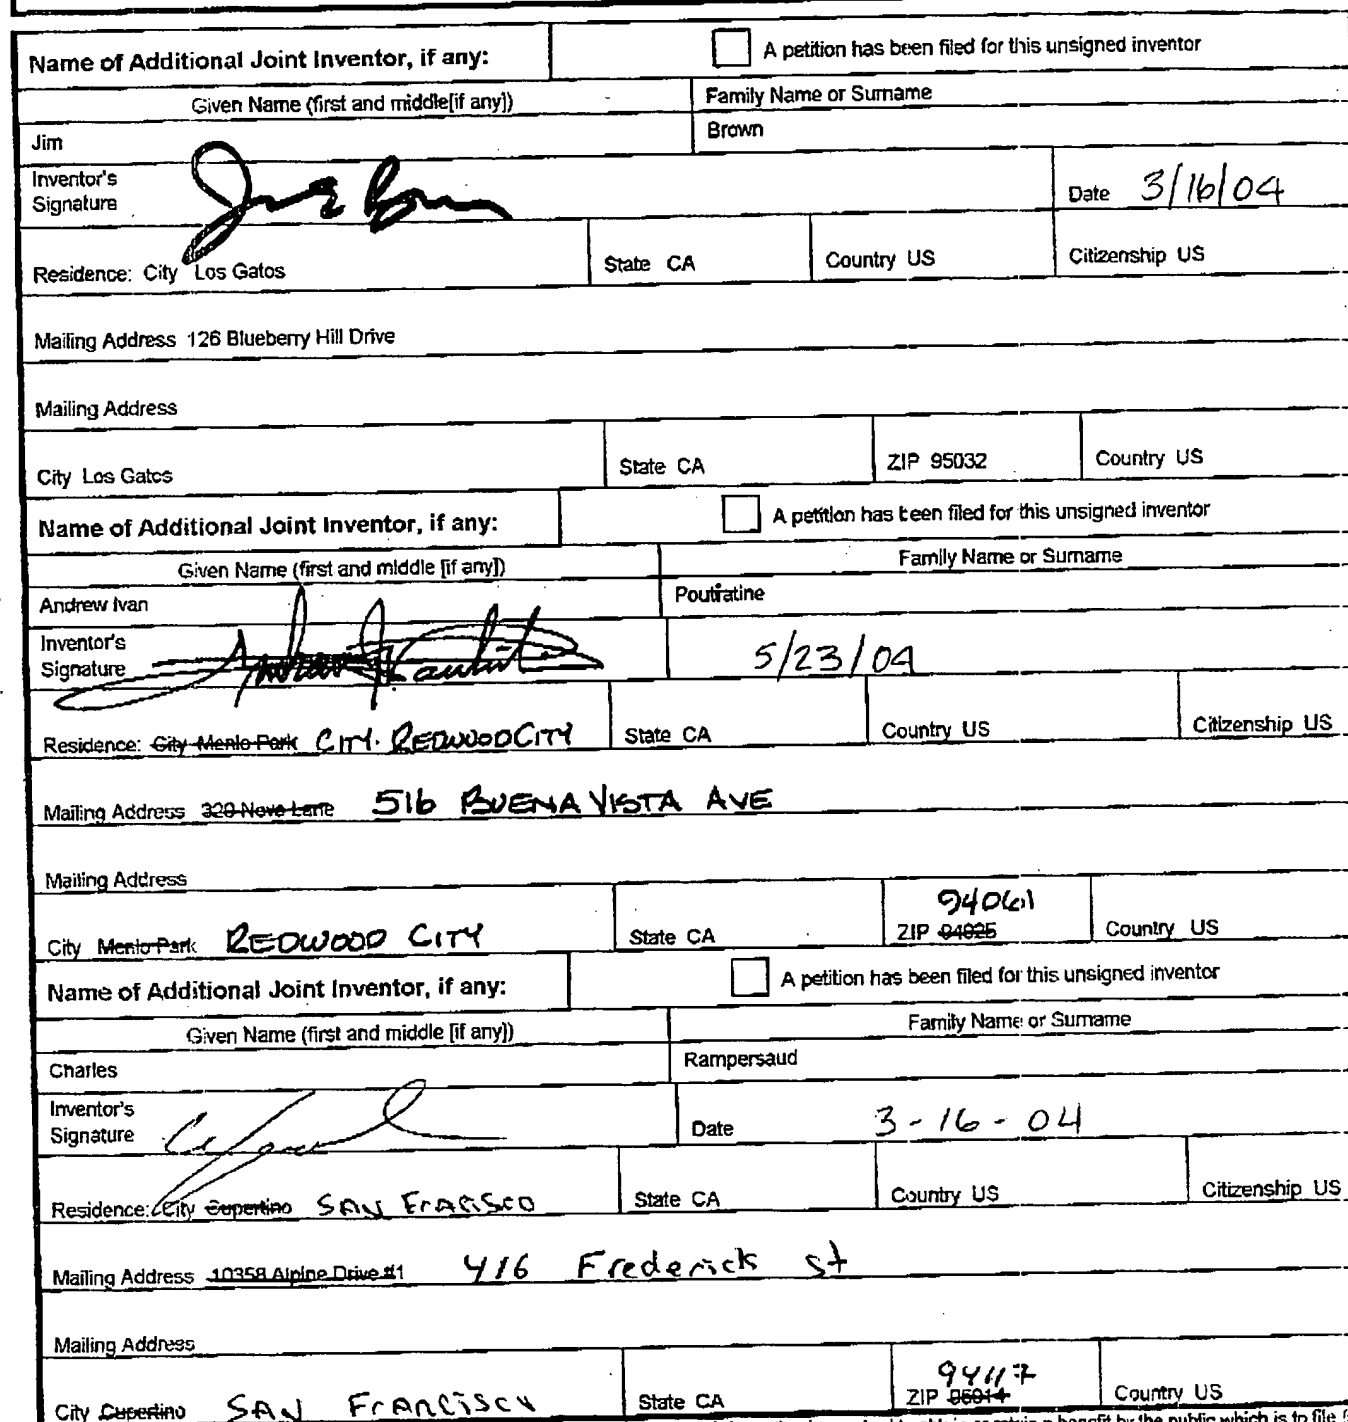 Name of Additional Joint Inventor, if any: A petition has been filed for this unsigned inventor
Given Name (first and middle[if any]) Family Name or Surname
Jim Brown
Inventor's
Signature Date 3/16/04
Residence: City Los Gatos State CA Country US Citizenship US
Mailing Address 126 Blueberry Hill Drive
Mailing Address
City Los Gatos State CA ZIP 95032 Country US
Name of Additional Joint Inventor, if any: A petition has been filed for this unsigned inventor
Given Name (first and middle [if any]) Family Name or Surname
Andrew Ivan Poutiatine
Inventor's
Signature 5/23/04
Residence: City Menlo Park CITY. REDWOOD CITY State CA Country US Citizenship US
Mailing Address 320 Nova Lane 516 BUENA VISTA AVE
Mailing Address
94061
City Menlo Park REDWOOD CITY State CA ZIP 94025 Country US
Name of Additional Joint Inventor, if any: A petition has been filed for this unsigned inventor
Given Name (first and middle [if any]) Family Name or Surname
Charles Rampersaud
Inventor's
Signature Date 3-16-04
Residence: City Cupertino SAN FrAcisco State CA Country US Citizenship US
Mailing Address 10358 Alpine Drive #1 416 Frederick st
Mailing Address
94117
City Cupertino SAN FrANCiSCo State CA ZIP 95014 Country US
a benefit by the public which is to file